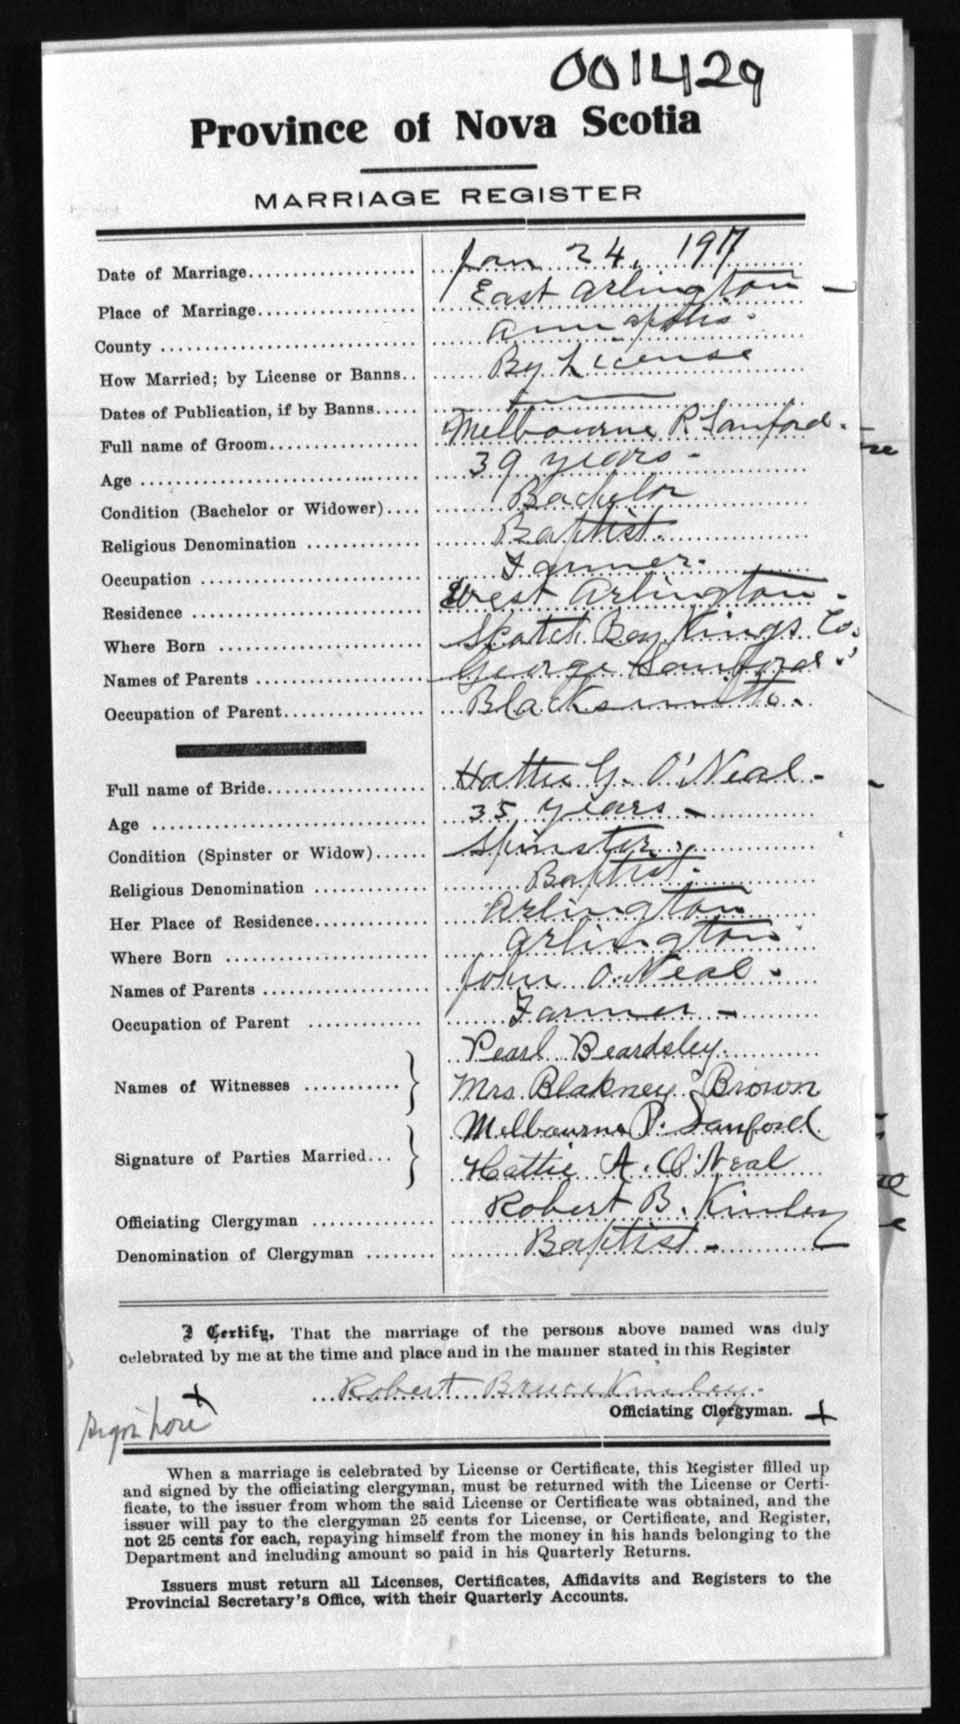 001429
Province of Nova Scotia
MARRIAGE REGISTER
Date of Marriage.................... Jan 24, 1917
Place of Marriage................... East Arlington -
County .............................. Annapolis.
How Married; by License or Banns.. By License
Dates of Publication, if by Banns..... —
Full name of Groom.................. Melbourne P. Sanford.
Age ................................. 39 years -
Condition (Bachelor or Widower).... Bachelor
Religious Denomination ............ Baptist.
Occupation .......................... Farmer.
Residence ........................... West Arlington.
Where Born ........................ Scotch Bay Kings Co.
Names of Parents ................... George Sanford
Occupation of Parent................ Blacksmith.
Full name of Bride.................. Hattie G. O'Neal -
Age ................................. 35 years -
Condition (Spinster or Widow)...... Spinster.
Religious Denomination ............ Baptist.
Her Place of Residence.............. Arlington
Where Born ........................ Arlington
Names of Parents ................... John O.Neal.
Occupation of Parent ............. Farmer -
Pearl Beardsley
Names of Witnesses ........... } Mrs. Blakney Brown
Melbourne P. Sanford
Signature of Parties Married... } Hattie A. O'Neal
Officiating Clergyman .............. Robert B. Kinley
Denomination of Clergyman ......... Baptist -
I Certify, That the marriage of the persons above named was duly
celebrated by me at the time and place and in the manner stated in this Register
Robert Bruce Kinley.
Officiating Clergyman. +
+
Sign here
When a marriage is celebrated by License or Certificate, this Register filled up
and signed by the officiating clergyman, must be returned with the License or Certi-
ficate, to the issuer from whom the said License or Certificate was obtained, and the
issuer will pay to the clergyman 25 cents for License, or Certificate, and Register,
not 25 cents for each, repaying himself from the money in his hands belonging to the
Department and including amount so paid in his Quarterly Returns.
Issuers must return all Licenses, Certificates, Affidavits and Registers to the
Provincial Secretary's Office, with their Quarterly Accounts.